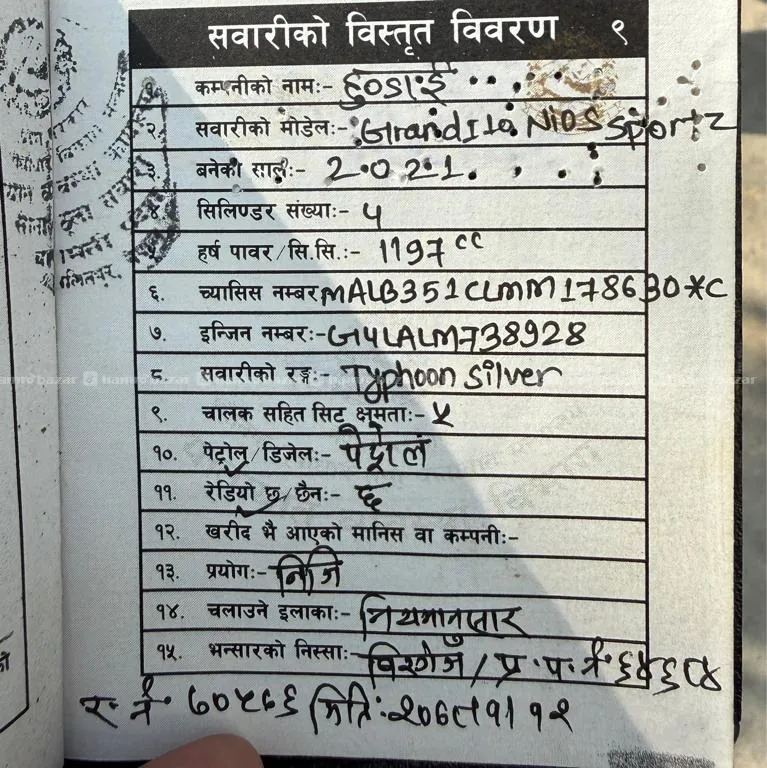 सवारीको विस्तृत विवरण ९
१. कम्पनीको नामः- हुण्डाई
२. सवारीको मोडेलः- Grand I10 NIOS Sportz
३. बनेको सालः- 2021.
४ सिलिण्डर संख्याः- ५
५. हर्ष पावर/सि.सि.:- 1197 cc
६. च्यासिस नम्बर MALB351CLMM178630*C
७. इन्जिन नम्बरः- G4LALM738928
८. सवारीको रङ्गः- Typhoon Silver
९. चालक सहित सिट क्षमताः- ५
१०. पेट्रोल/डिजेलः- पेट्रोल
११. रेडियो छ/छैनः- छ
१२. खरीद भै आएको मानिस वा कम्पनीः-
१३. प्रयोगः- निजि
१४. चलाउने इलाकाः- नियमानुसार
१५. भन्सारको निस्साः- विरगंज / प्र.प.नं.
र.नं. मितिः
hamrobazar hamrobazar